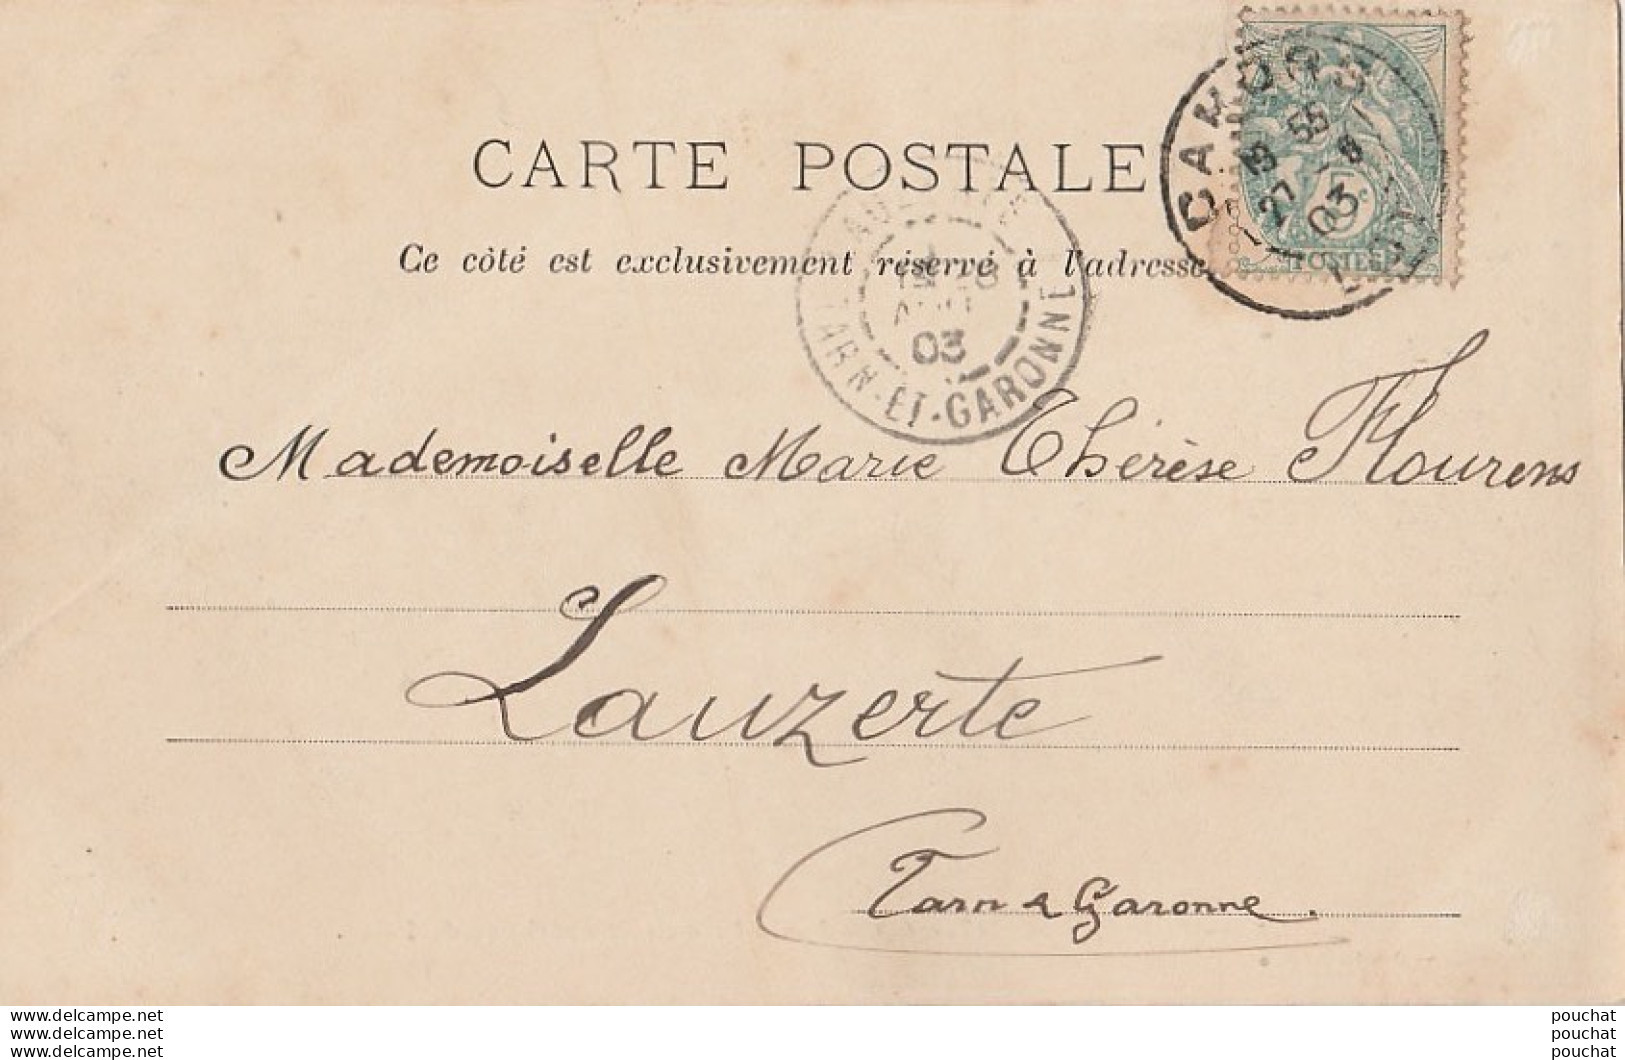 CARTE POSTALE
Ce côté est exclusivement réservé à l'adresse
CAHORS
15 55
27 -8
03
LOT
POSTES
5c
TARN-ET-GARONNE
03
Mademoiselle Marie Thérèse Flourens
Lauzerte
Tarn & Garonne.
www.delcampe.net
www.delcampe.net
www.delcampe.net
pouchat
pouchat
pouchat